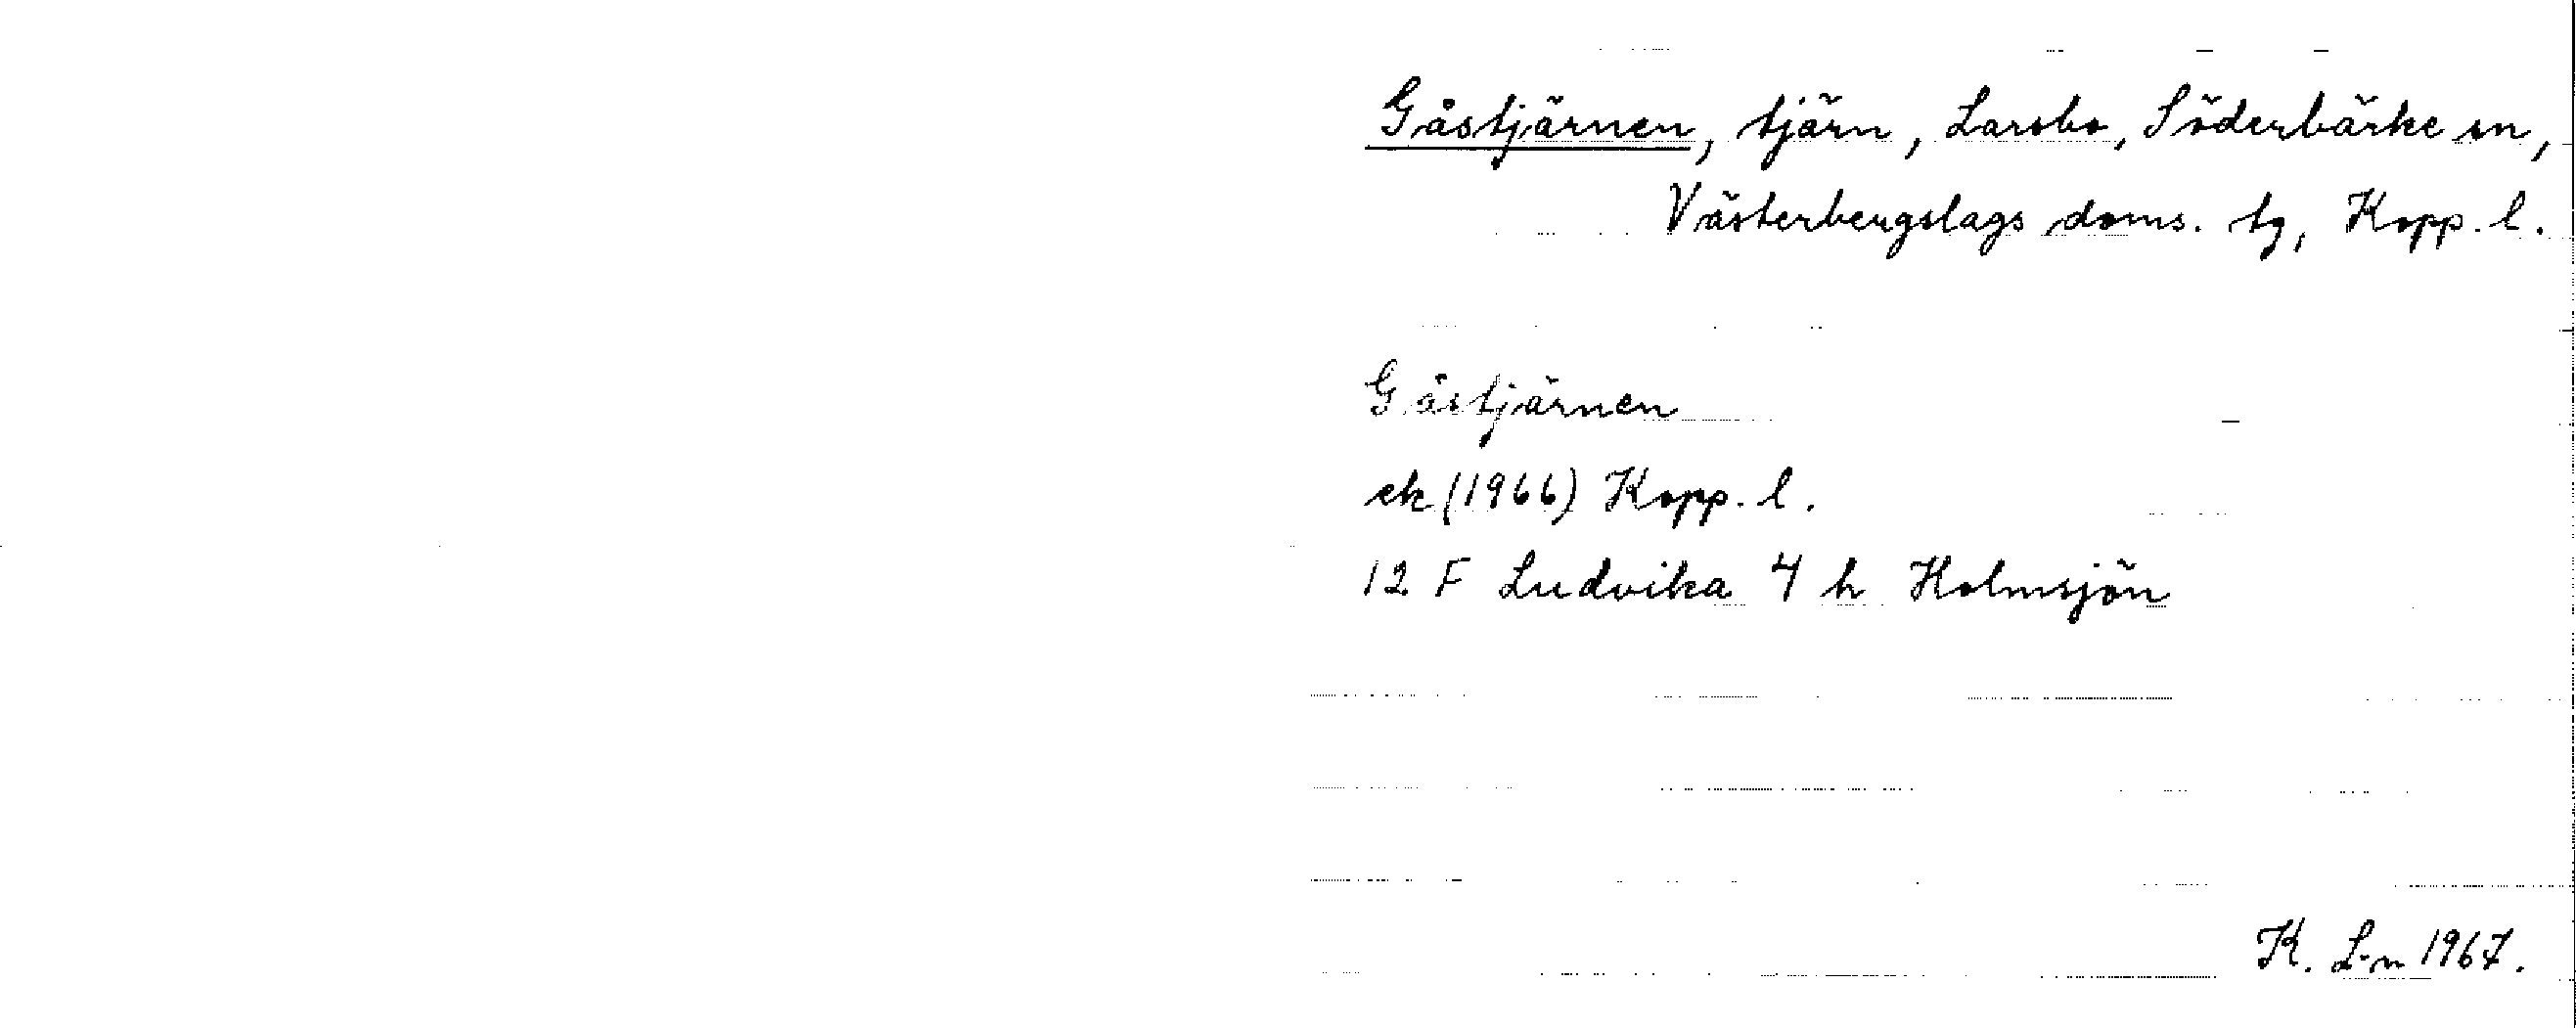 Gåstjärnen, tjärn, Larsbo, Söderbärke sn,
Västerbergslags doms. tg, Kopp. l.
Gåstjärnen
ek (1966) Kopp. l.
12 F Ludvika 4 h Holmsjön
K. L-n 1967.